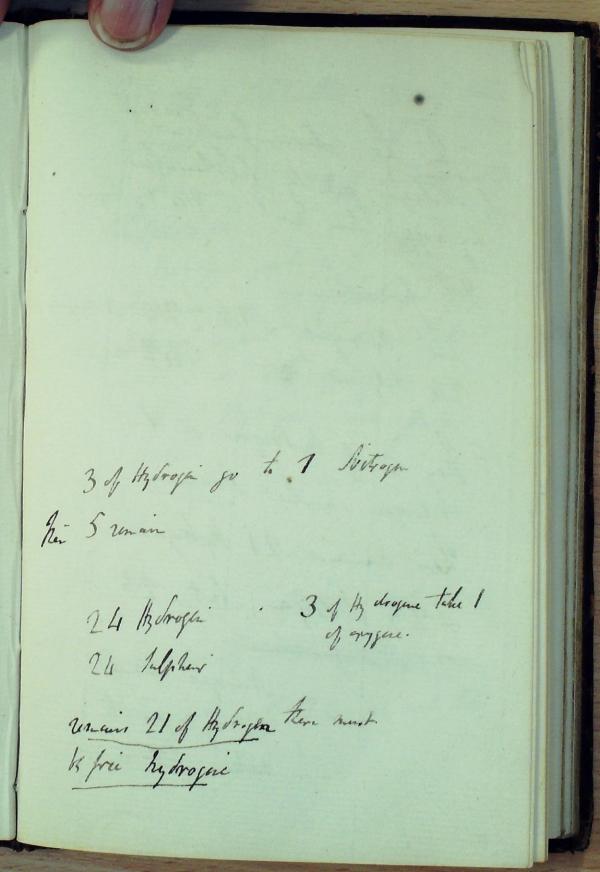 3 of Hydrogen go to 1 Nitrogen
then 5 remain
24 Hydrogen
24 Sulphur
3 of Hydrogene take 1
of oxygene.
remains 21 of Hydrogen there must
be free hydrogene